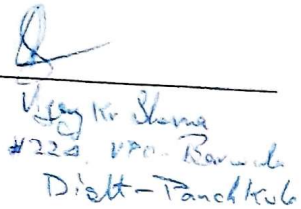 Vijay Kr Sharma
#224, VPO - Barwala
Distt - Panchkula